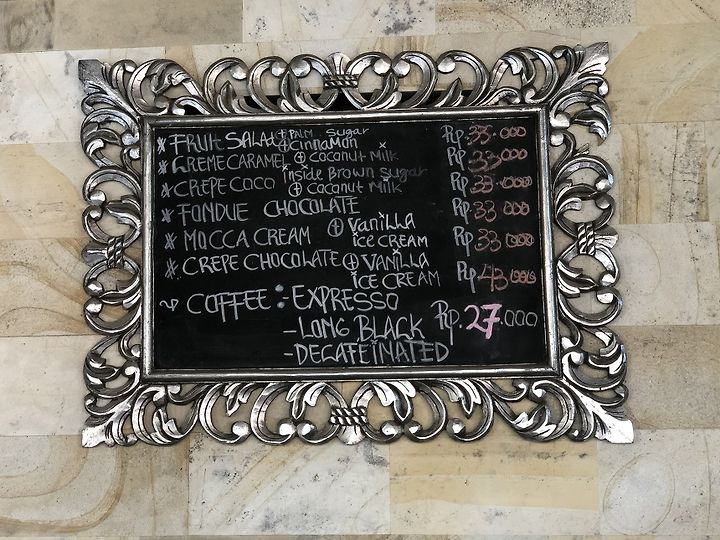 * FRUIT SALAD ⊕ PALM SUGAR ⊕ CINNAMON Rp. 33.000
* CREME CARAMEL ⊕ COCONUT MILK Rp 33000
* CREPE COCO inside Brown sugar ⊕ COCONUT MILK Rp. 33.000
* FONDUE CHOCOLATE Rp. 33 000
* MOCCA CREAM ⊕ VANILLA Rp. 33 000
ICE CREAM
* CREPE CHOCOLATE ⊕ VANILLA Rp 43 000
ICE CREAM
~ COFFEE : - EXPRESSO Rp. 27.000
- LONG BLACK
- DECAFEINATED